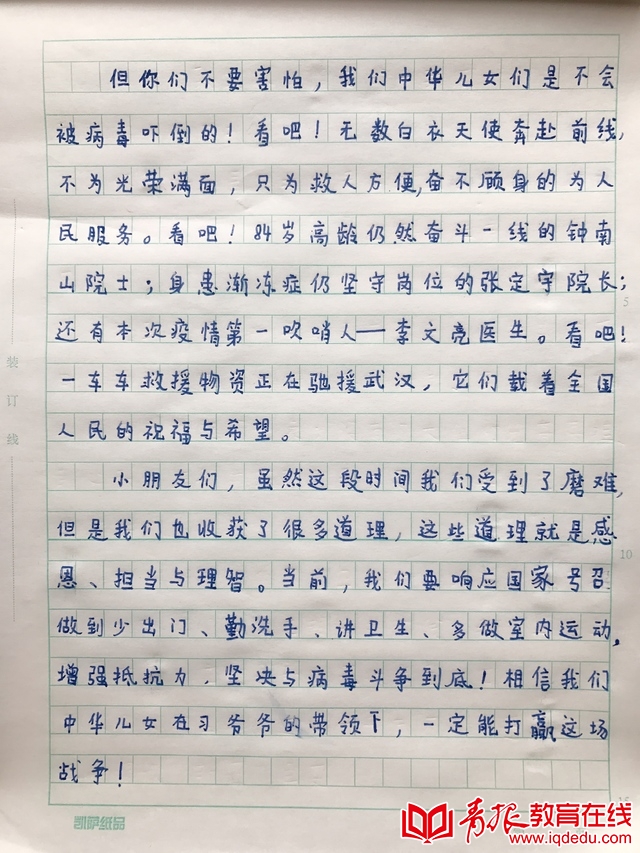 但你们不要害怕，我们中华儿女们是不会
被病毒吓倒的！看吧！无数白衣天使奔赴前线，
不为光荣满面，只为救人方便，奋不顾身的为人
民服务。看吧！84岁高龄仍然奋斗一线的钟南
山院士；身患渐冻症仍坚守岗位的张定宇院长；
还有本次疫情第一吹哨人——李文亮医生。看吧！
一车车救援物资正在驰援武汉，它们载着全国
人民的祝福与希望。
小朋友们，虽然这段时间我们受到了磨难，
但是我们也收获了很多道理，这些道理就是感
恩、担当与理智。当前，我们要响应国家号召
做到少出门、勤洗手、讲卫生、多做室内运动，
增强抵抗力，坚决与病毒斗争到底！相信我们
中华儿女在习爷爷的带领下，一定能打赢这场
战争！
装订线
5
10
15
凯萨纸品
青报教育在线
www.iqdedu.com